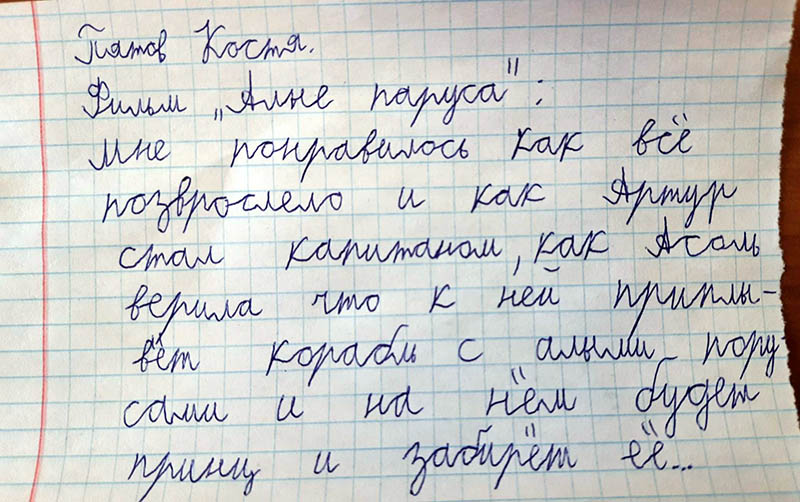 Пятов Костя.
Фильм „Алые паруса":
Мне понравилось как всё
повзрослело и как Артур
стал капитаном, как Асоль
верила что к ней приплы-
вёт корабль с алыми пару-
сами и на нём будет
принц и забирёт её...